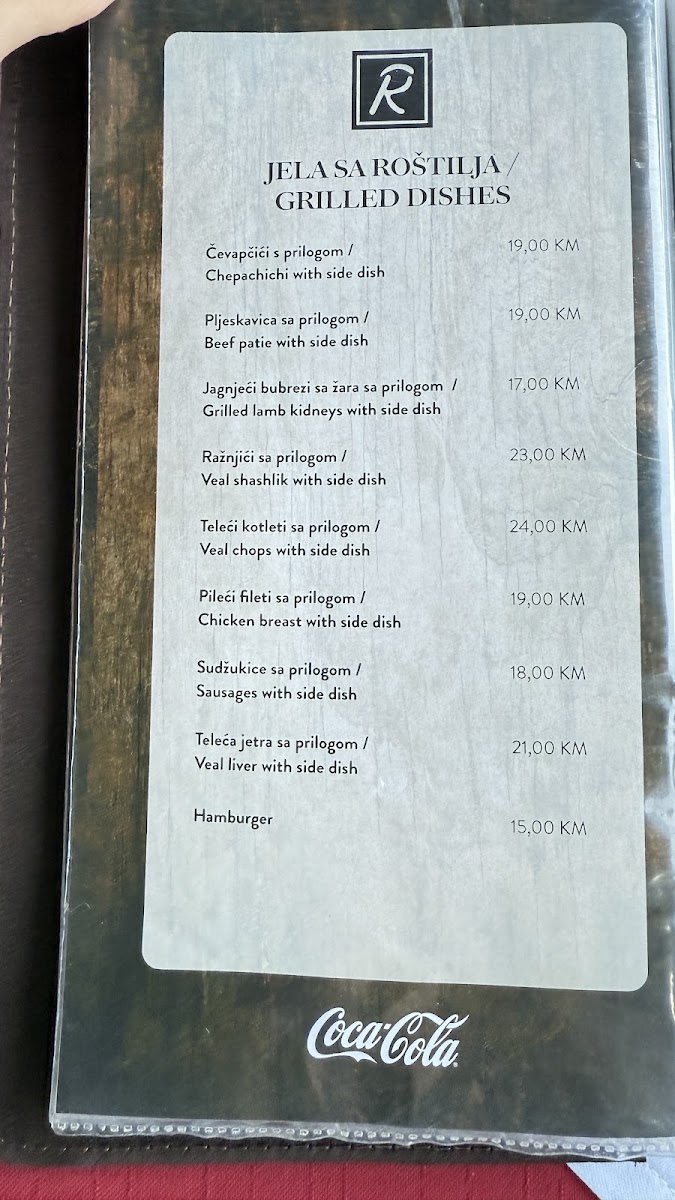 R
JELA SA ROŠTILJA /
GRILLED DISHES
Čevapčići s prilogom / 19,00 KM
Chepachichi with side dish
Pljeskavica sa prilogom / 19,00 KM
Beef patie with side dish
Jagnjeći bubrezi sa žara sa prilogom / 17,00 KM
Grilled lamb kidneys with side dish
Ražnjići sa prilogom / 23,00 KM
Veal shashlik with side dish
Teleći kotleti sa prilogom / 24,00 KM
Veal chops with side dish
Pileći fileti sa prilogom / 19,00 KM
Chicken breast with side dish
Sudžukice sa prilogom / 18,00 KM
Sausages with side dish
Teleća jetra sa prilogom / 21,00 KM
Veal liver with side dish
Hamburger 15,00 KM
Coca-Cola